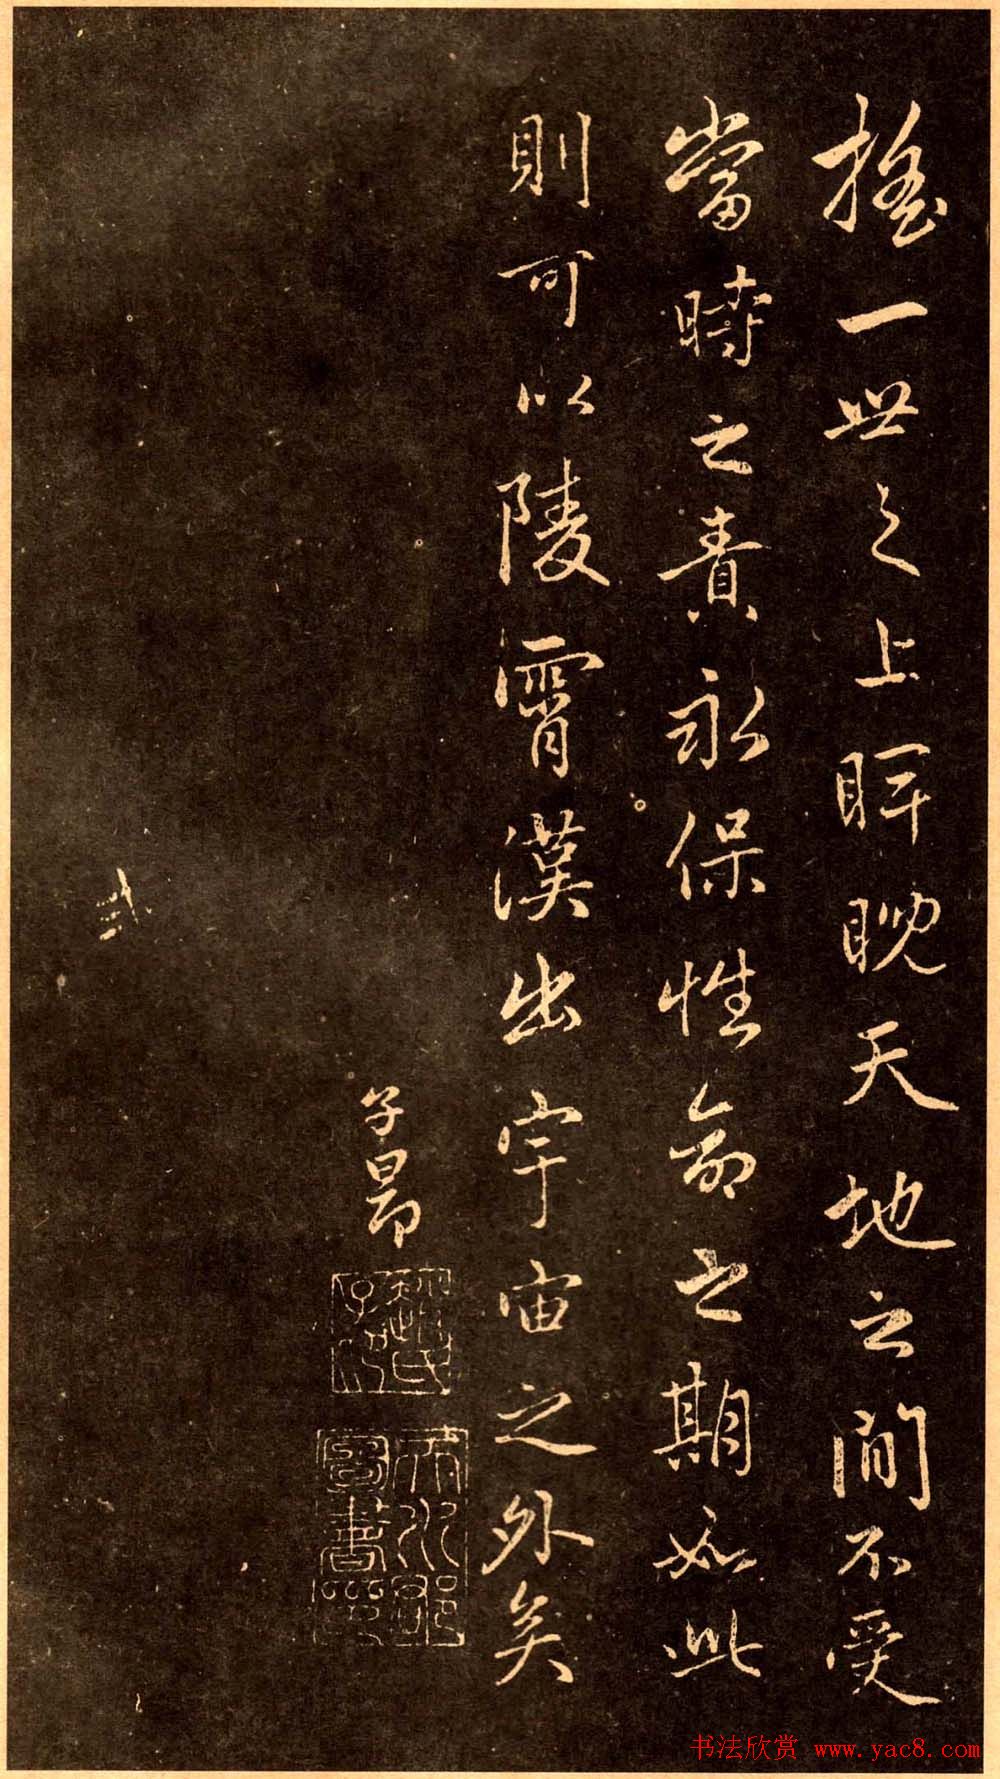 搖一世之上睥睨天地之間不受
當時之責永保性命之期如此
則可以陵霄漢出宇宙之外矣
子昂
趙氏子昂
书法欣赏 www.yac8.com